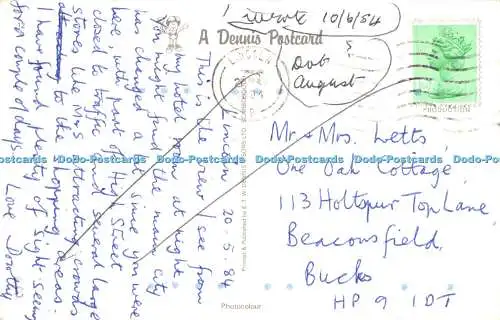 I wrote 10/6/84
A Dennis Postcard
Dot
August
LINCOLN
Lincoln 20-5-84
This is the view I see from
my hotel room at night.
You might find the main city
has changed a bit since you were
here, with part of High Street
closed to traffic and several large
stores like M & S attracting crowds
to the shopping areas.
I have found plenty of sight seeing
for a couple of days.
Love Dorothy
Printed & Published by E.T.W. Dennis & Sons Ltd., Scarborough
Photocolour
PRODUCTION
Mr & Mrs. Letts,
One Oak Cottage,
113 Holtspur Top Lane,
Beaconsfield,
Bucks
HP 9 1DT
Dodo-Postcards Dodo-Postcards Dodo-Postcards Dodo-Postcards Dodo-Postcards Dodo-Postcards